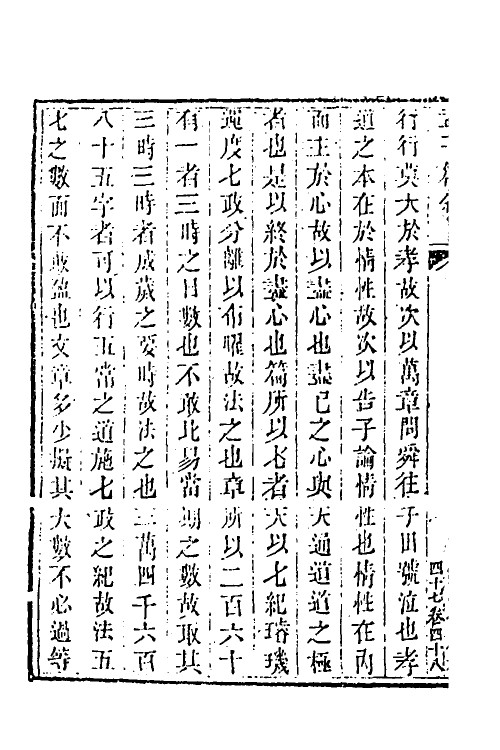 行行莫大於孝故次以萬章問舜往于田號泣也孝
道之本在於情性故次以告子論情性也情性在內
而主於心故以盡心也盡己之心與天通道道之極
者也是以終於盡心也篇所以七者天以七紀璿璣
運度七政分離以布曜故法之也章所以二百六十
有一者三時之日數也不敢比易當期之數故取其
三時三時者成歲之要時故法之也三萬四千六百
八十五字者可以行五常之道施七政之紀故法五
七之數而不敢盈也文章多少擬其大數不必適等